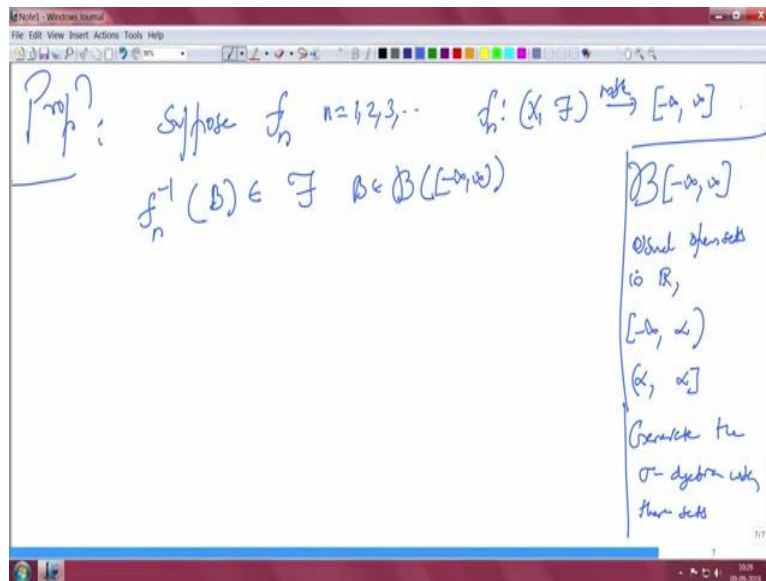 Note1 - Windows Journal
File Edit View Insert Actions Tools Help
Propⁿ: Suppose fₙ n=1,2,3,... fₙ: (X, ℱ) → [-∞, ∞].
fₙ⁻¹(B) ∈ ℱ B ∈ ℬ([-∞,∞])
ℬ[-∞,∞]
usual open sets
in ℝ,
[-∞, α)
(α, α]
Generate the
σ-algebra with
these sets
7/7
7
10:29